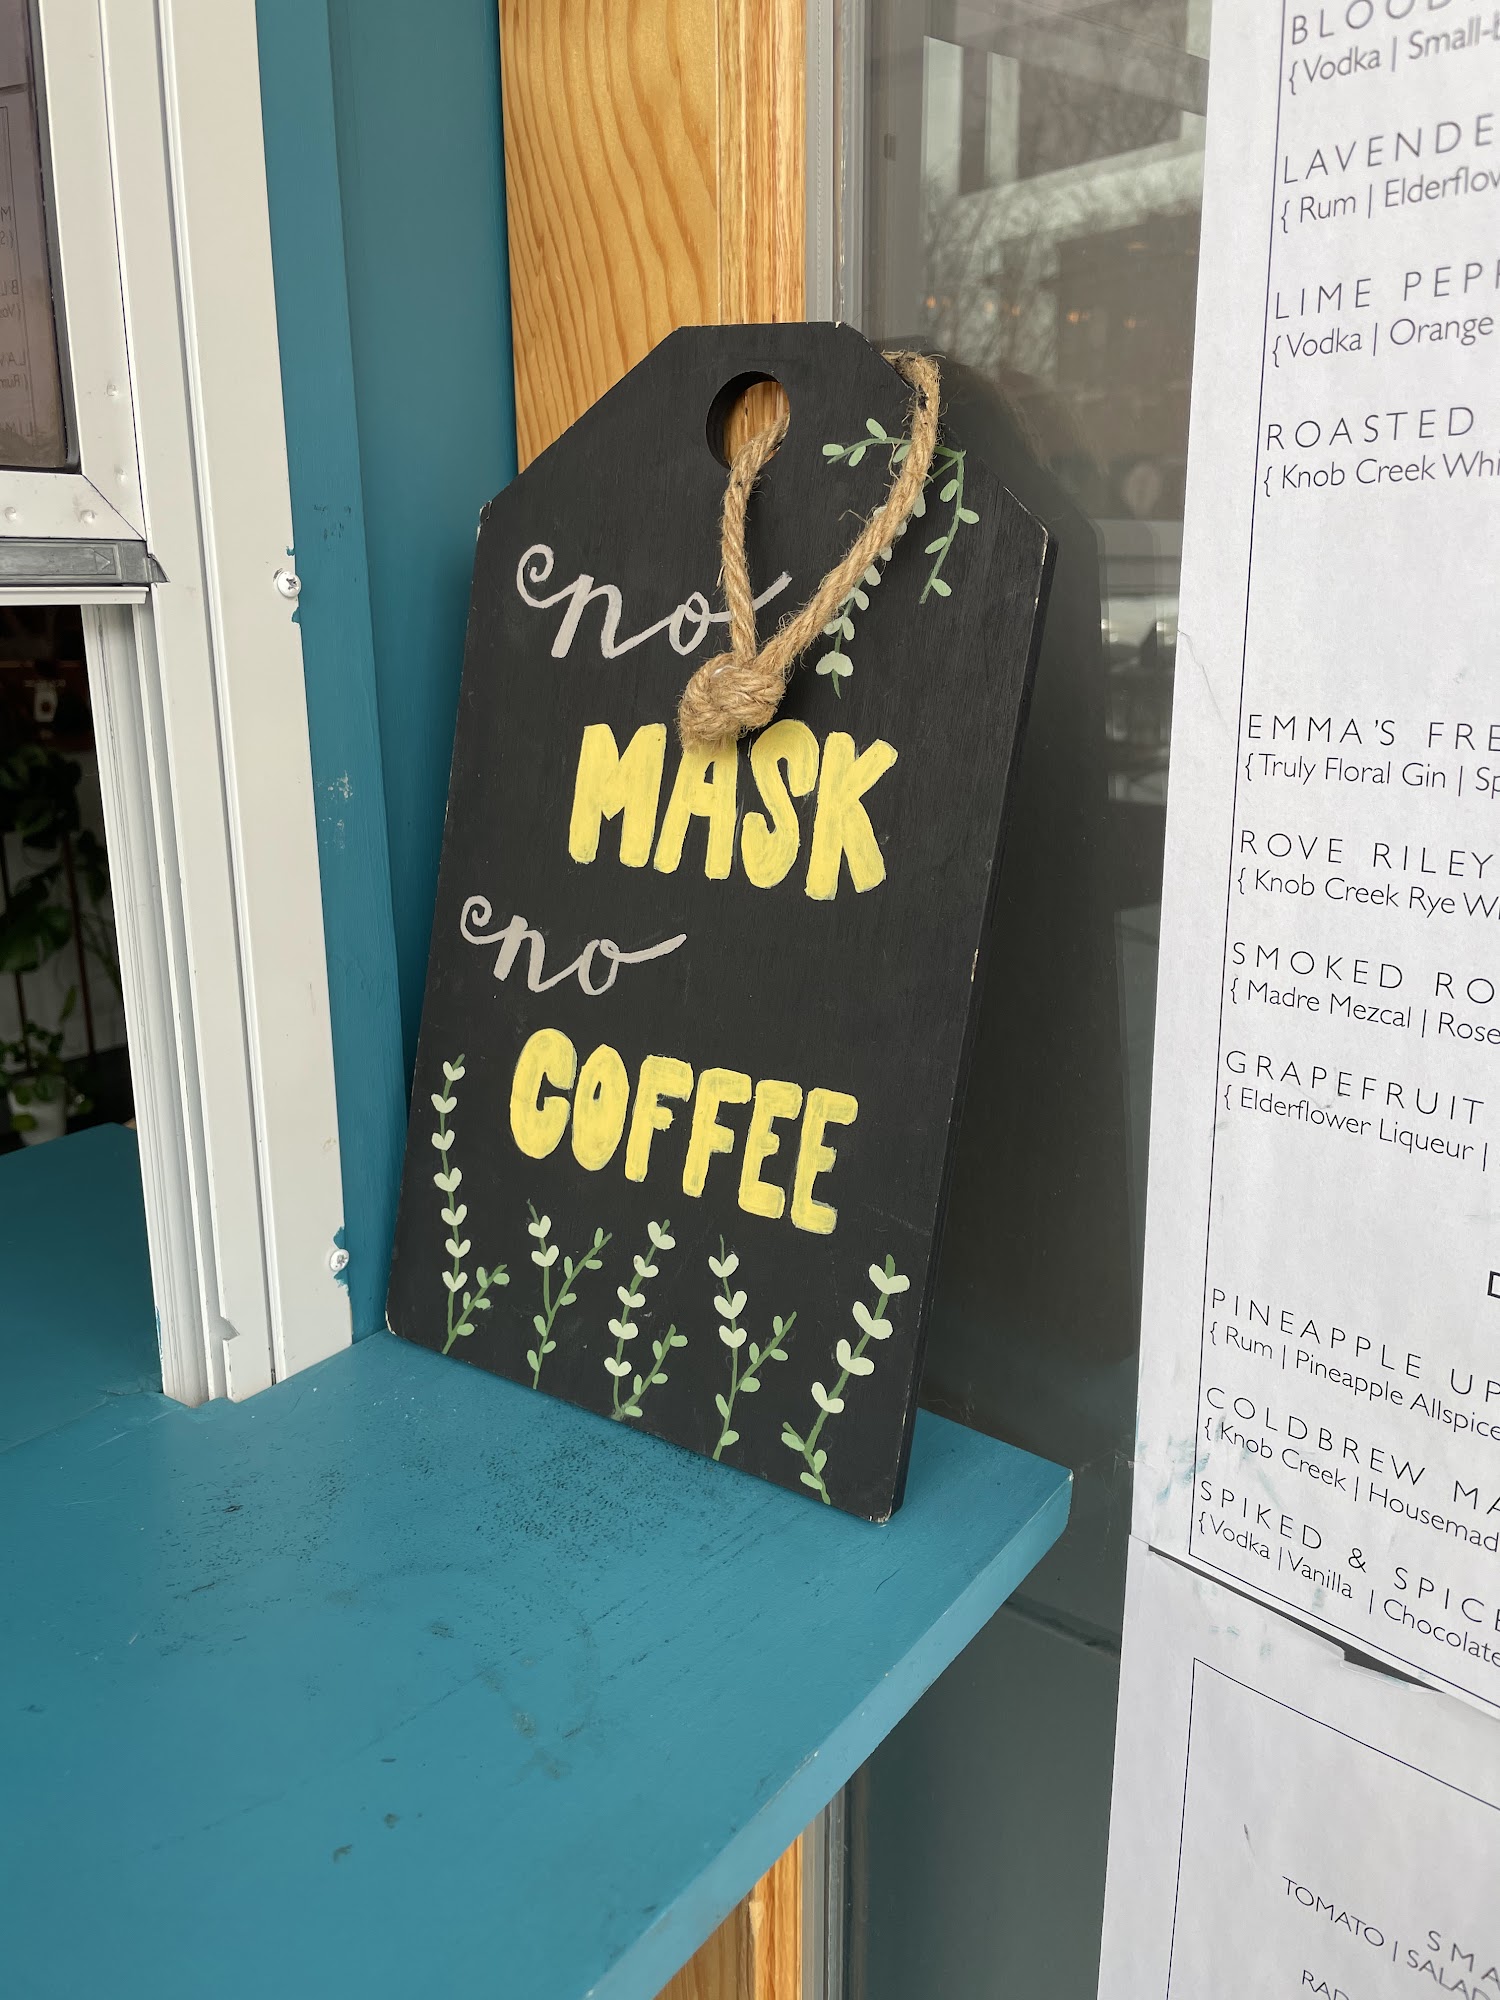 no
MASK
no
COFFEE
{Vodka | Small-
LAVENDE
{ Rum | Elderflow
LIME PEP
{Vodka | Orange
ROASTED
{ Knob Creek Whi
EMMA'S FRE
{Truly Floral Gin | Sp
ROVE RILEY
{ Knob Creek Rye W
SMOKED RO
{ Madre Mezcal | Rose
GRAPEFRUIT
{ Elderflower Liqueur |
PINEAPPLE UP
{ Rum | Pineapple Allspice
COLDBREW MA
{ Knob Creek | Housemad
SPIKED & SPICE
{Vodka | Vanilla | Chocolate
SMA
TOMATO | SALAD